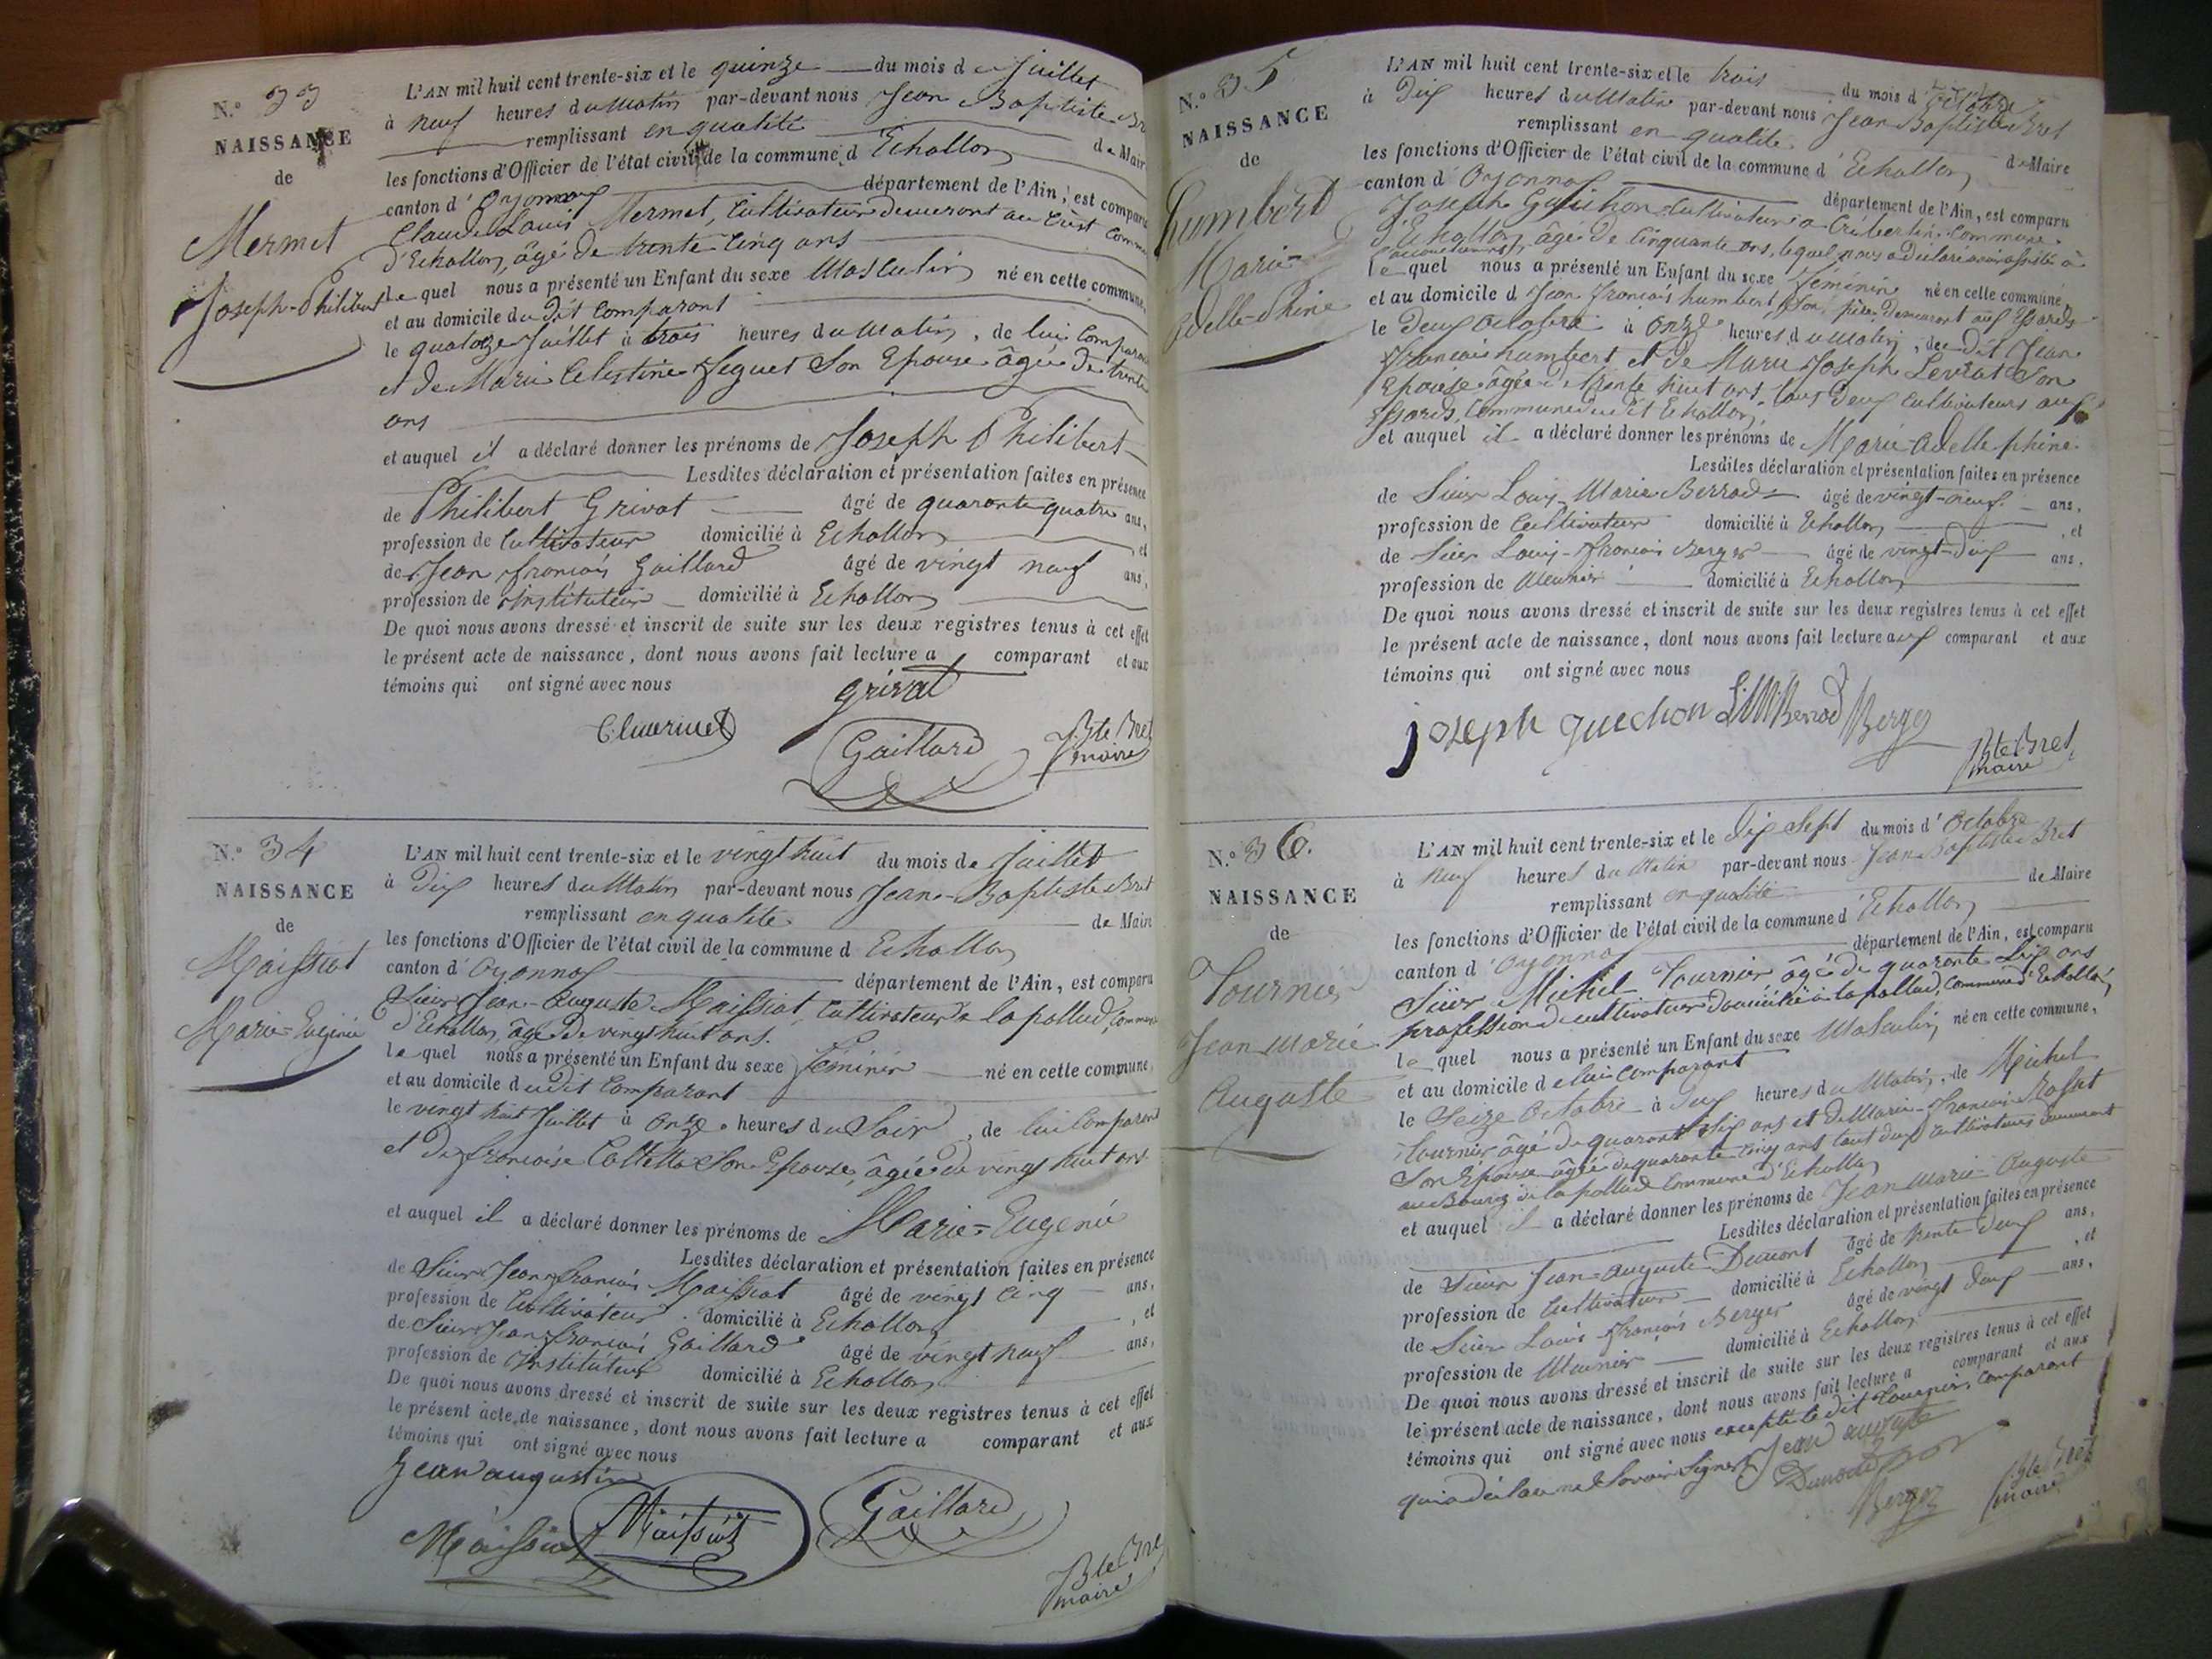 N.° 33
NAISSANCE
de
Mermet
Joseph-Philibert
L'AN mil huit cent trente-six et le quinze du mois de Juillet
à neuf heures du Matin par-devant nous Jean Baptiste Br
remplissant en qualité de Mair
les fonctions d'Officier de l'état civil de la commune d Echallon
canton d' Oyonnax département de l'Ain, est comparu
Claude Louis Mermet, Cultivateur demeurant au Crêt Comm
d'Echallon, âgé de trente Cinq ans
le quel nous a présenté un Enfant du sexe Masculin né en cette commune,
et au domicile du dit Comparant
le quatorze Juillet à trois heures du Matin, de lui Comparant
et de Marie Celestine Seguet Son Epouse âgée de trente
ans
et auquel il a déclaré donner les prénoms de Joseph Philibert
Lesdites déclaration et présentation faites en présence
de Philibert Grivat âgé de quarante quatre ans,
profession de Cultivateur domicilié à Echallon et
de Jean François Gaillard âgé de vingt neuf ans,
profession de Instituteur domicilié à Echallon
De quoi nous avons dressé et inscrit de suite sur les deux registres tenus à cet effet
le présent acte de naissance, dont nous avons fait lecture a comparant et aux
témoins qui ont signé avec nous
grivat
Gaillard
J Bte Bret
maire
N.° 34
NAISSANCE
de
Maissiat
Marie=Eugénie
L'AN mil huit cent trente-six et le vingt huit du mois de Juillet
à Dix heures du Matin par-devant nous Jean-Baptiste Bret
remplissant en qualité de Maire
les fonctions d'Officier de l'état civil de la commune d Echallon
canton d' Oyonnax département de l'Ain, est comparu
Sieur Jean-Auguste Maissiat, Cultivateur a la pallud Commune
d'Echallon, âgé de vingt huit ans.
le quel nous a présenté un Enfant du sexe féminin né en cette commune,
et au domicile dudit Comparant
le vingt huit Juillet à Onze heures du Soir, de lui Comparant
et de françoise Collella Son Epouse, âgée de vingt huit ans
et auquel il a déclaré donner les prénoms de Marie=Eugénie
Lesdites déclaration et présentation faites en présence
de Sieur Jean françois Maissiat âgé de vingt Cinq ans,
profession de Cultivateur domicilié à Echallon, et
de Sieur Jean françois Gaillard âgé de vingt neuf ans,
profession de Instituteur domicilié à Echallon
De quoi nous avons dressé et inscrit de suite sur les deux registres tenus à cet effet
le présent acte de naissance, dont nous avons fait lecture a comparant et aux
témoins qui ont signé avec nous
Jean augustin
Maissiat Maissiat Gaillard
J Bte Bret
maire
N.° 35
NAISSANCE
de
humbert
Marie-
adelle-phine
L'AN mil huit cent trente-six et le trois du mois d'Octobre
à Dix heures du Matin par-devant nous Jean Baptiste Bret
remplissant en qualité de Maire
les fonctions d'Officier de l'état civil de la commune d' Echallon
canton d' Oyonnax département de l'Ain, est comparu
Joseph Guichon Cultivateur a Cribertin Commune
d'Echallon, âgé de Cinquante ans, lequel nous a déclaré avoir assisté à
l'accouchement,
le quel nous a présenté un Enfant du sexe féminin né en cette commune,
et au domicile d Jean françois humbert, Son père demeurant aux Essards
le Deux Octobre à Onze heures du Matin, du Dit Jean
françois humbert et de Marie Joseph Levrat Son
Epouse âgée de trente huit ans, tous deux Cultivateurs aux
Essards, Commune dudit Echallon,
et auquel il a déclaré donner les prénoms de Marie-Adelle phine.
Lesdites déclaration et présentation faites en présence
de Sieur Louis-Marie Berrod âgé de vingt-neuf ans,
profession de Cultivateur domicilié à Echallon, et
de Sieur Louis-françois Berger âgé de vingt-deux ans,
profession de Meunier domicilié à Echallon
De quoi nous avons dressé et inscrit de suite sur les deux registres tenus à cet effet
le présent acte de naissance, dont nous avons fait lecture aux comparant et aux
témoins qui ont signé avec nous
joseph guichon L.M. Berrod Berger
J Bte Bret
maire
N.° 36.
NAISSANCE
de
Tournier
Jean Marie
Auguste
L'AN mil huit cent trente-six et le Dix Sept du mois d' Octobre
à Neuf heures du Matin par-devant nous Jean Baptiste Bret
remplissant en qualité de Maire
les fonctions d'Officier de l'état civil de la commune d' Echallon
canton d' Oyonnax département de l'Ain, est comparu
Sieur Michel Tournier âgé de quarante Six ans
profession de cultivateur domicilié à la pallud, Commune d'Echallon,
le quel nous a présenté un Enfant du sexe Masculin né en cette commune,
et au domicile de lui Comparant
le Seize Octobre à Six heures du Matin, de Michel
Tournier âgé de quarante Six ans et de Marie-françoise
Son Epouse âgée de quarante-cinq ans tout deux Cultivateurs demeurant
au Bourg de la pallud Commune d'Echallon
et auquel il a déclaré donner les prénoms de Jean Marie Auguste
Lesdites déclaration et présentation faites en présence
de Sieur Jean-Auguste Dumont âgé de trente deux ans,
profession de Cultivateur domicilié à Echallon, et
de Sieur Louis-françois Berger âgé de vingt deux ans,
profession de Meunier domicilié à Echallon
De quoi nous avons dressé et inscrit de suite sur les deux registres tenus à cet effet
le présent acte de naissance, dont nous avons fait lecture a comparant et aux
témoins qui ont signé avec nous excepté le dit Tournier, Comparant
qui a déclaré ne Savoir Signer Jean auguste
Dumont
Berger
J Bte Bret
maire